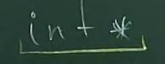 int *